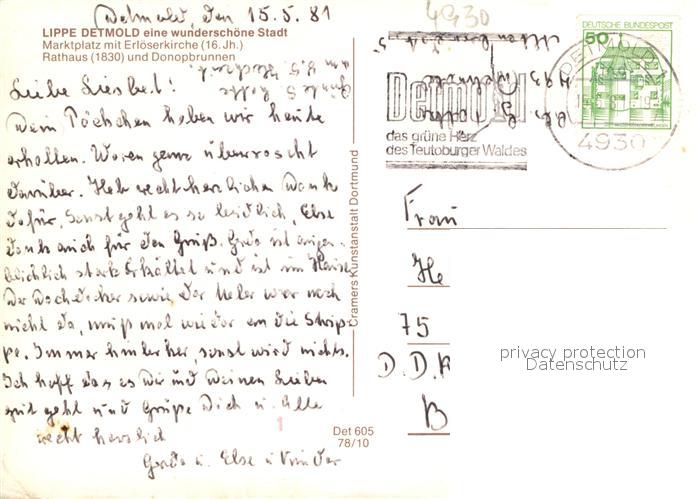 Detmold, den 15.5.81
LIPPE DETMOLD eine wunderschöne Stadt
Marktplatz mit Erlöserkirche (16. Jh.)
Rathaus (1830) und Donopbrunnen
Liebe Liesbet!
Dein Päckchen haben wir heute
erhalten. Waren ganz überrascht
darüber. Hab recht herzlichen Dank
dafür. Sonst geht es so leidlich, Else
dankt auch für den Gruß. Gerda ist augen-
blicklich stark Erkältet und ist im Hause
Der Dachdecker sowie der Maler war noch
nicht da, muß mal wieder an die Strip-
pe. Immer hinterher, sonst wird nichts.
Ich hoff das es Dir und Deinen Lieben
gut geht und Grüße Dich u. Alle
recht herzlich
Gerda u. Else u Kinder
Cramers Kunstanstalt Dortmund
1
Det 605
78/10
4930
Detmold
das grüne Herz
des Teutoburger Waldes
DEUTSCHE BUNDESPOST
50
DETMOLD 1
4930
Frau
He
75
D.D.R
B
privacy protection
Datenschutz